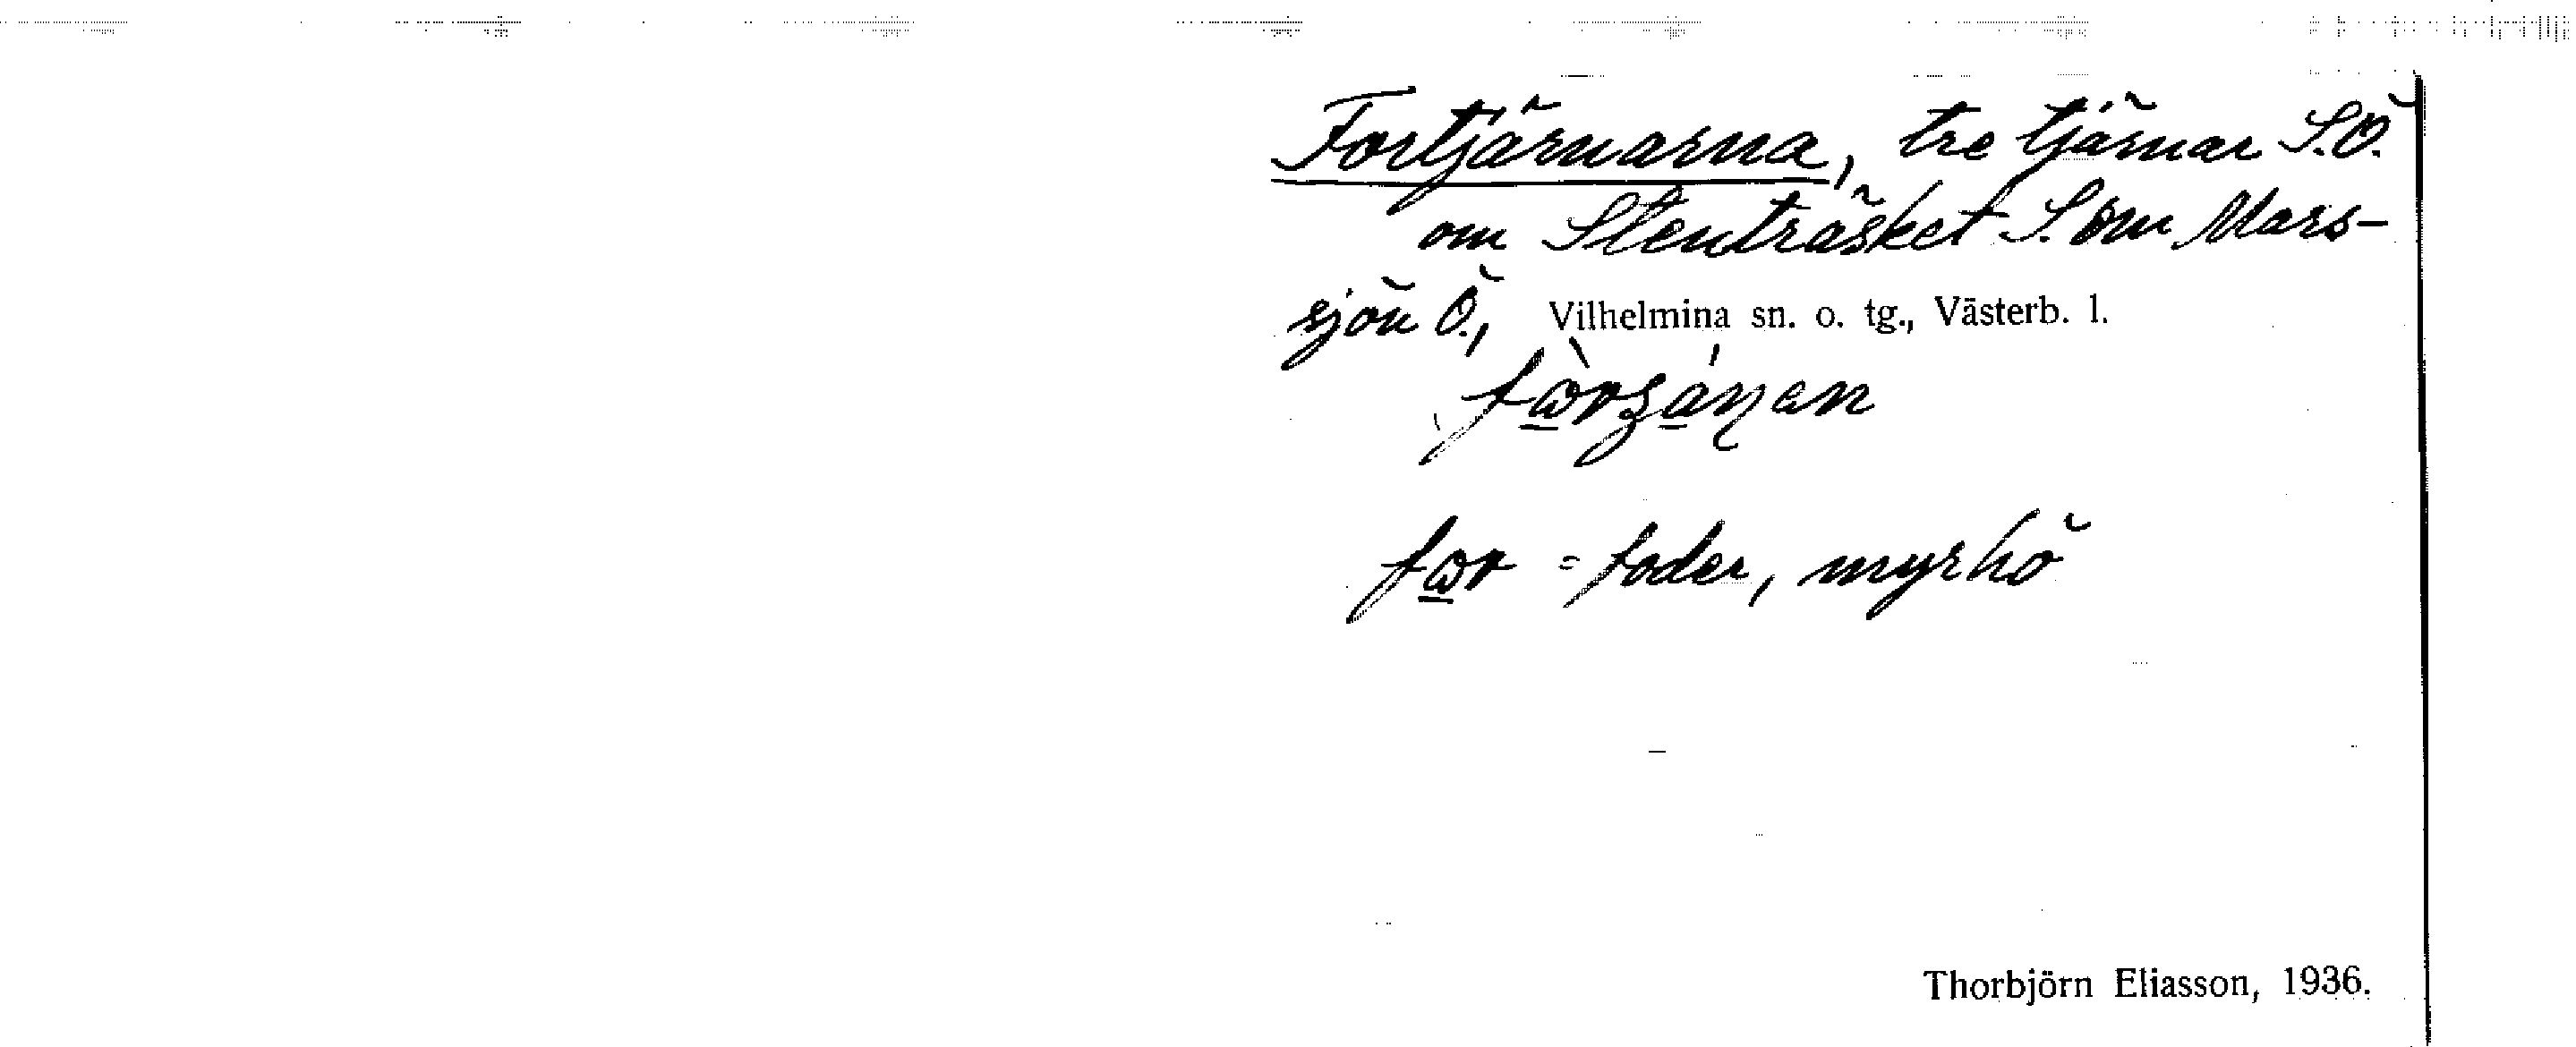 Fortjärnarna, tre tjärnar S.Ö.
om Stenträsket S. om Mars-
sjön Ö., Vilhelmina sn. o. tg., Västerb. l.
= foder, myrhö
Thorbjörn Eliasson, 1936.